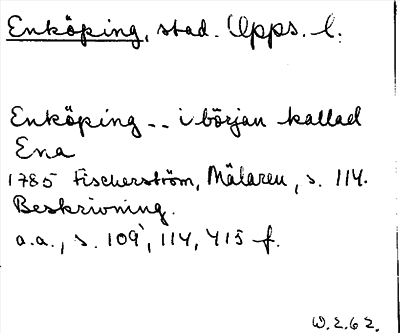 Enköping, stad. Upps. l.
Enköping -- i början kallad
Ena
1785 Fischerström, Mälaren, s. 114.
Beskrivning.
a.a., s. 109, 114, 415 f.
W.E.62.